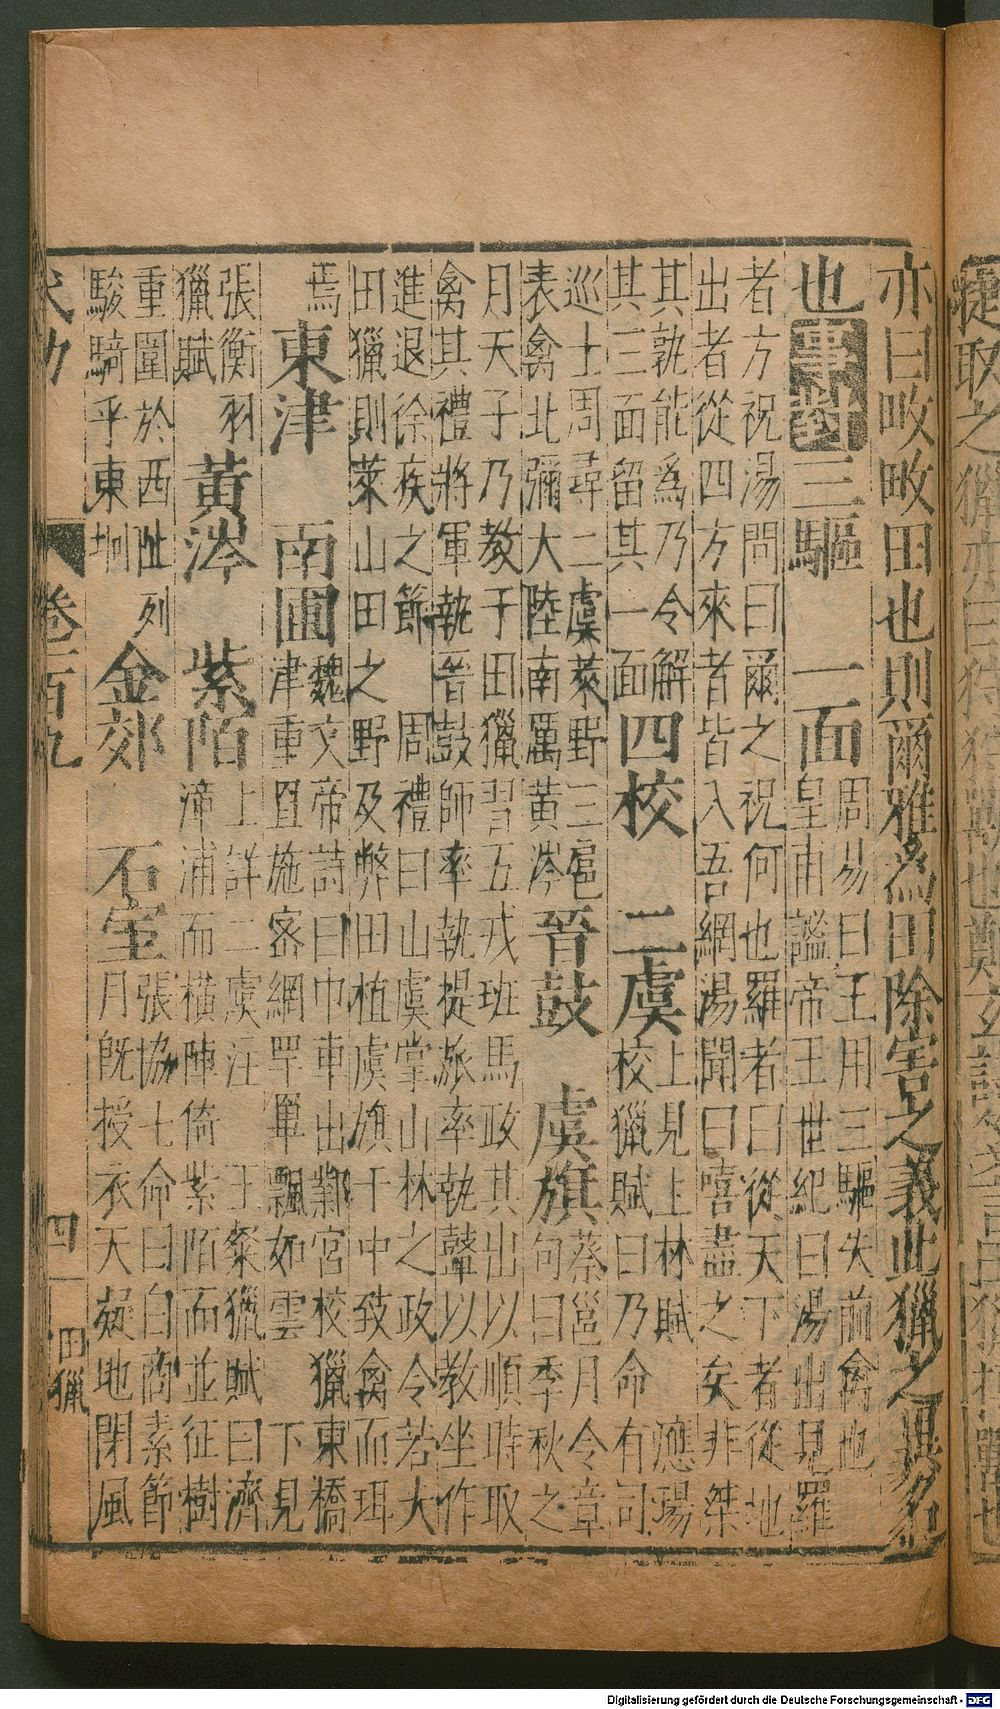 亦曰畋畋田也則爾雅為田除害之義此獵之異名
也 事對 三驅 一面
周易曰王用三驅失前禽也
皇甫謐帝王世紀曰湯出見羅
者方祝湯問曰爾之祝何也羅者曰從天下者從地
出者從四方來者皆入吾網湯聞曰嘻盡之矣非桀
其孰能爲乃令解
其三面留其一面
四校 二虞
上見上林賦 應瑒
校獵賦曰乃命有司
巡土周尋二虞萊野三扈
表禽北彌大陸南厲黃涔
晉鼓 虞旗
蔡邕月令章
句曰季秋之
月天子乃教于田獵習五戎班馬政其出以順時取
禽其禮將軍執晉鼓師率執提旅率執鼙以教坐作
進退徐疾之節 周禮曰山虞掌山林之政令若大
田獵則萊山田之野及弊田植虞旗于中致禽而珥
焉 東津 南圃
魏文帝詩曰巾車出鄴宮校獵東橋
津重罝施密網罕罼飄如雲 下見
張衡羽
獵賦
黃涔 紫陌
上詳二虞注 王粲獵賦曰濟
漳浦而橫陣倚紫陌而並征樹
重圍於西阯列
駿騎乎東坰
金郊 石室
張協七命曰白商素節
月旣授衣天凝地閉風
卷二百九 四 田獵
Digitalisierung gefördert durch die Deutsche Forschungsgemeinschaft - DFG